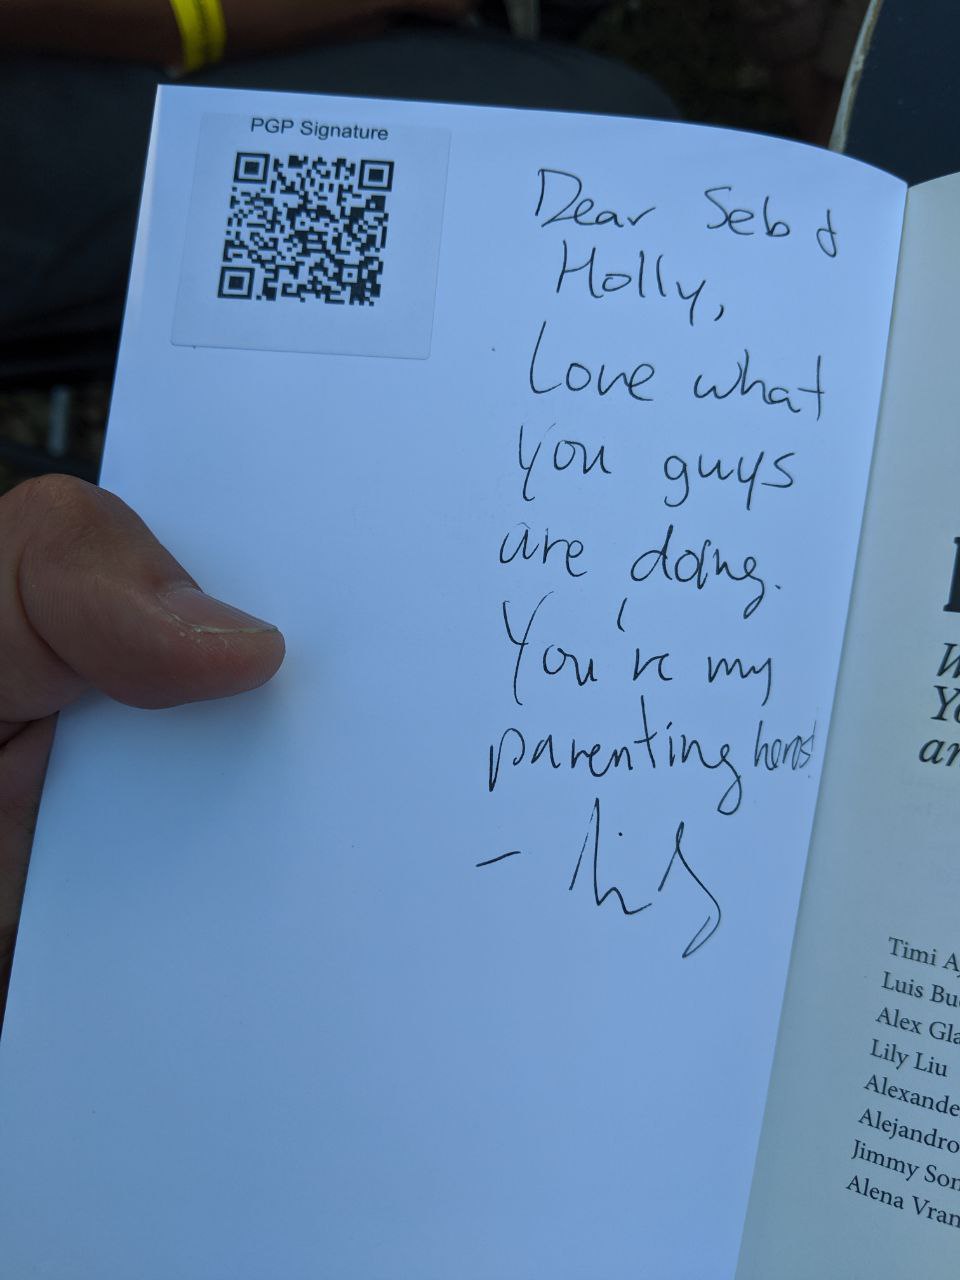 PGP Signature
Dear Seb &
Holly,
Love what
you guys
are doing.
You're my
parenting heros!
W
Yo
an
Timi A
Luis Bu
Alex Gla
Lily Liu
Alexande
Alejandro
Jimmy Son
Alena Vran